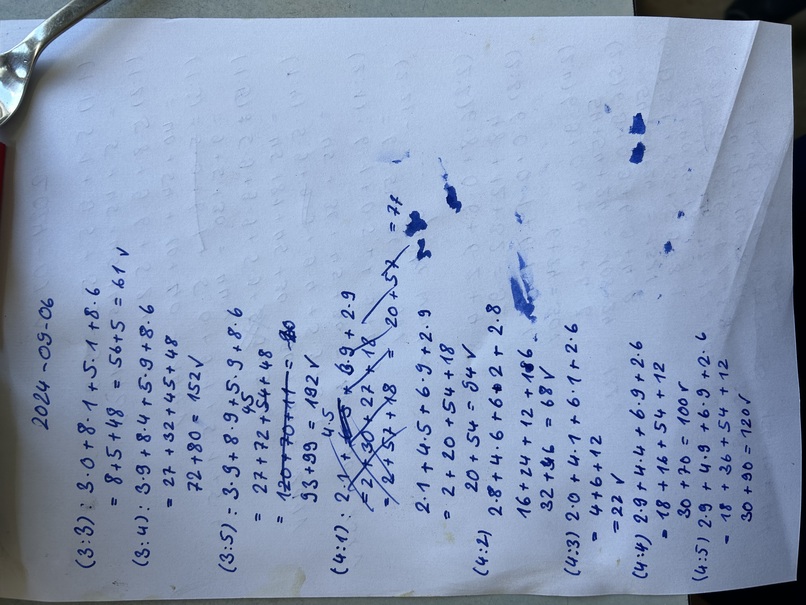 2024-09-06
(3:3): 3·0+8·1+5·1+8·6
= 8+5+48 = 56+5 = 61 √
(3:4): 3·9+8·4+5·9+8·6
= 27+32+45+48
72+80 = 152 √
(3:5): 3·9+8·9+5·9+8·6
45
= 27+72+54+48
= 120+70+11 =
93+99 = 192 √
4·5
(4:1): 2·1+ + 6·9 + 2·9
= 2+30+27+18
= 2+57+18 = 20+57 = 77
2·1+4·5+6·9+2·9
= 2+20+54+18
20+54 = 94 √
(4:2) 2·8+4·6+6·2+2·8
16+24+12+16
32+36 = 68 √
(4:3) 2·0+4·1+6·1+2·6
= 4+6+12
= 22 √
(4:4) 2·9+4·4+6·9+2·6
= 18+16+54+12
30+70 = 100 √
(4:5) 2·9+4·9+6·9+2·6
= 18+36+54+12
30+90 = 120 √